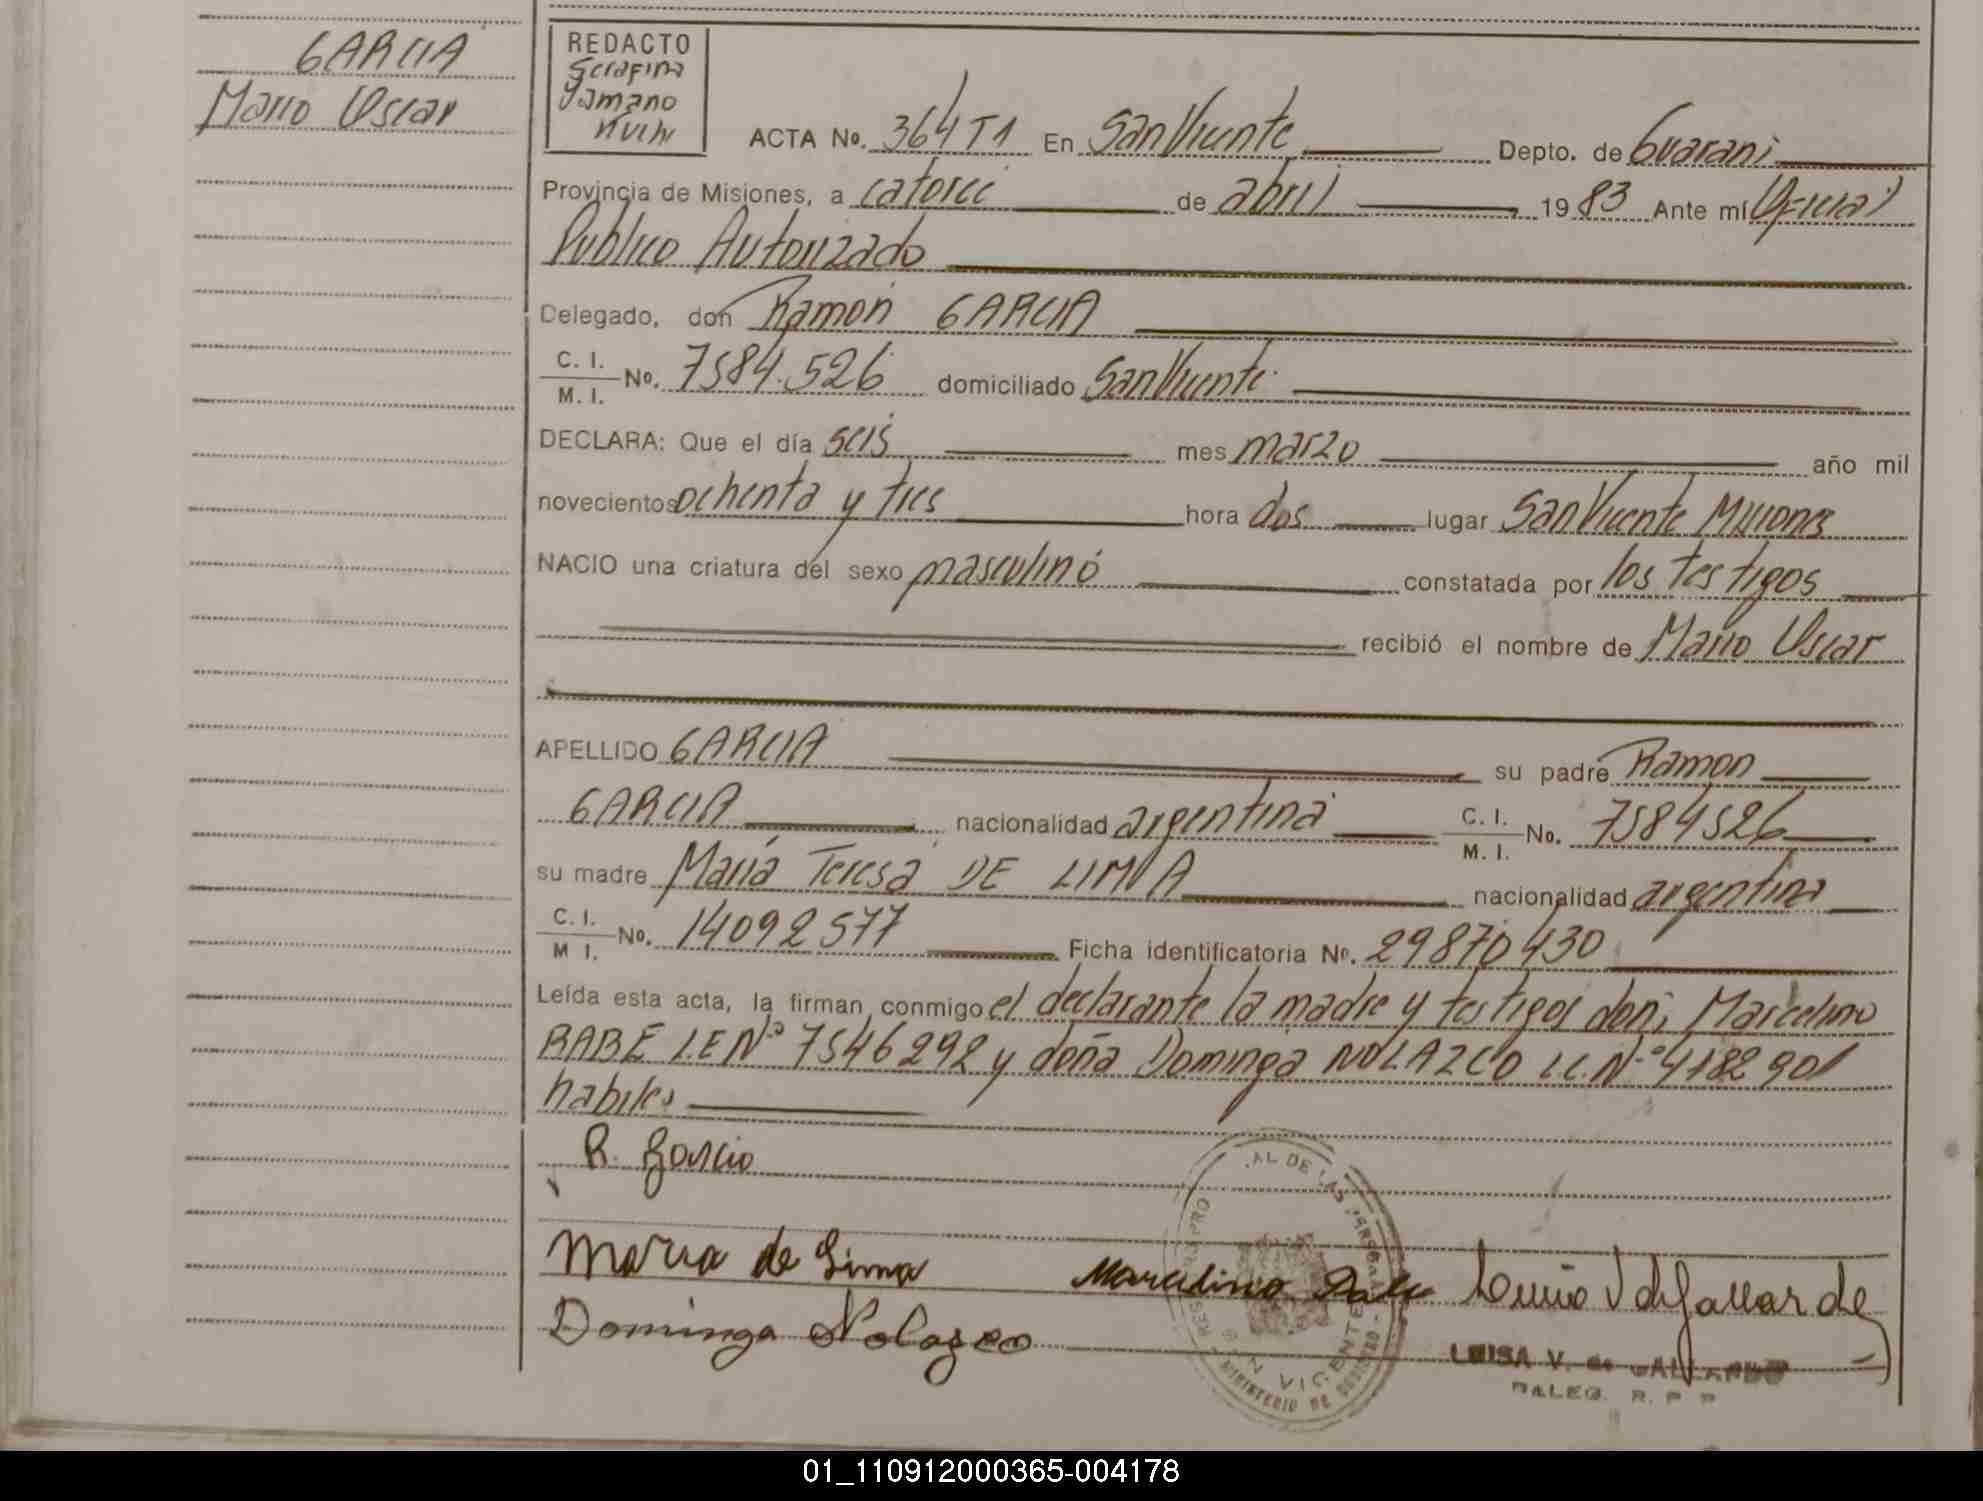 GARCIA
Mario Oscar
REDACTO
Serafina
ACTA No. 364 T1 En San Vicente Depto. de Guarani
Provincia de Misiones, a catorce de abril 1983 Ante mí Oficial
Publico Autorizado
Delegado, don Ramon GARCIA
C. I.
M. I. No. 7584.526 domiciliado San Vicente
DECLARA: Que el día seis mes marzo año mil
novecientos ochenta y tres hora dos lugar San Vicente Misiones
NACIO una criatura del sexo masculino constatada por los testigos
recibió el nombre de Mario Oscar
APELLIDO GARCIA su padre Ramon
GARCIA nacionalidad argentina C. I.
M. I. No. 7584526
su madre Maria Teresa DE LIMA nacionalidad argentina
C. I.
M I. No. 14092577 Ficha identificatoria Nº. 29870430
Leída esta acta, la firman conmigo el declarante la madre y testigos don; Marcelino
BABE L.E Nº 7546292 y doña Dominga NOLAZCO L.C. Nº 4182901
habiles
R. Garcia
Maria de Lima Marcelino
Dominga Nolazco
LUISA V. de GALLARDO
DALEG. R. P. P
SAN VICENTE
MINISTERIO DE GOBIERNO
01_110912000365-004178